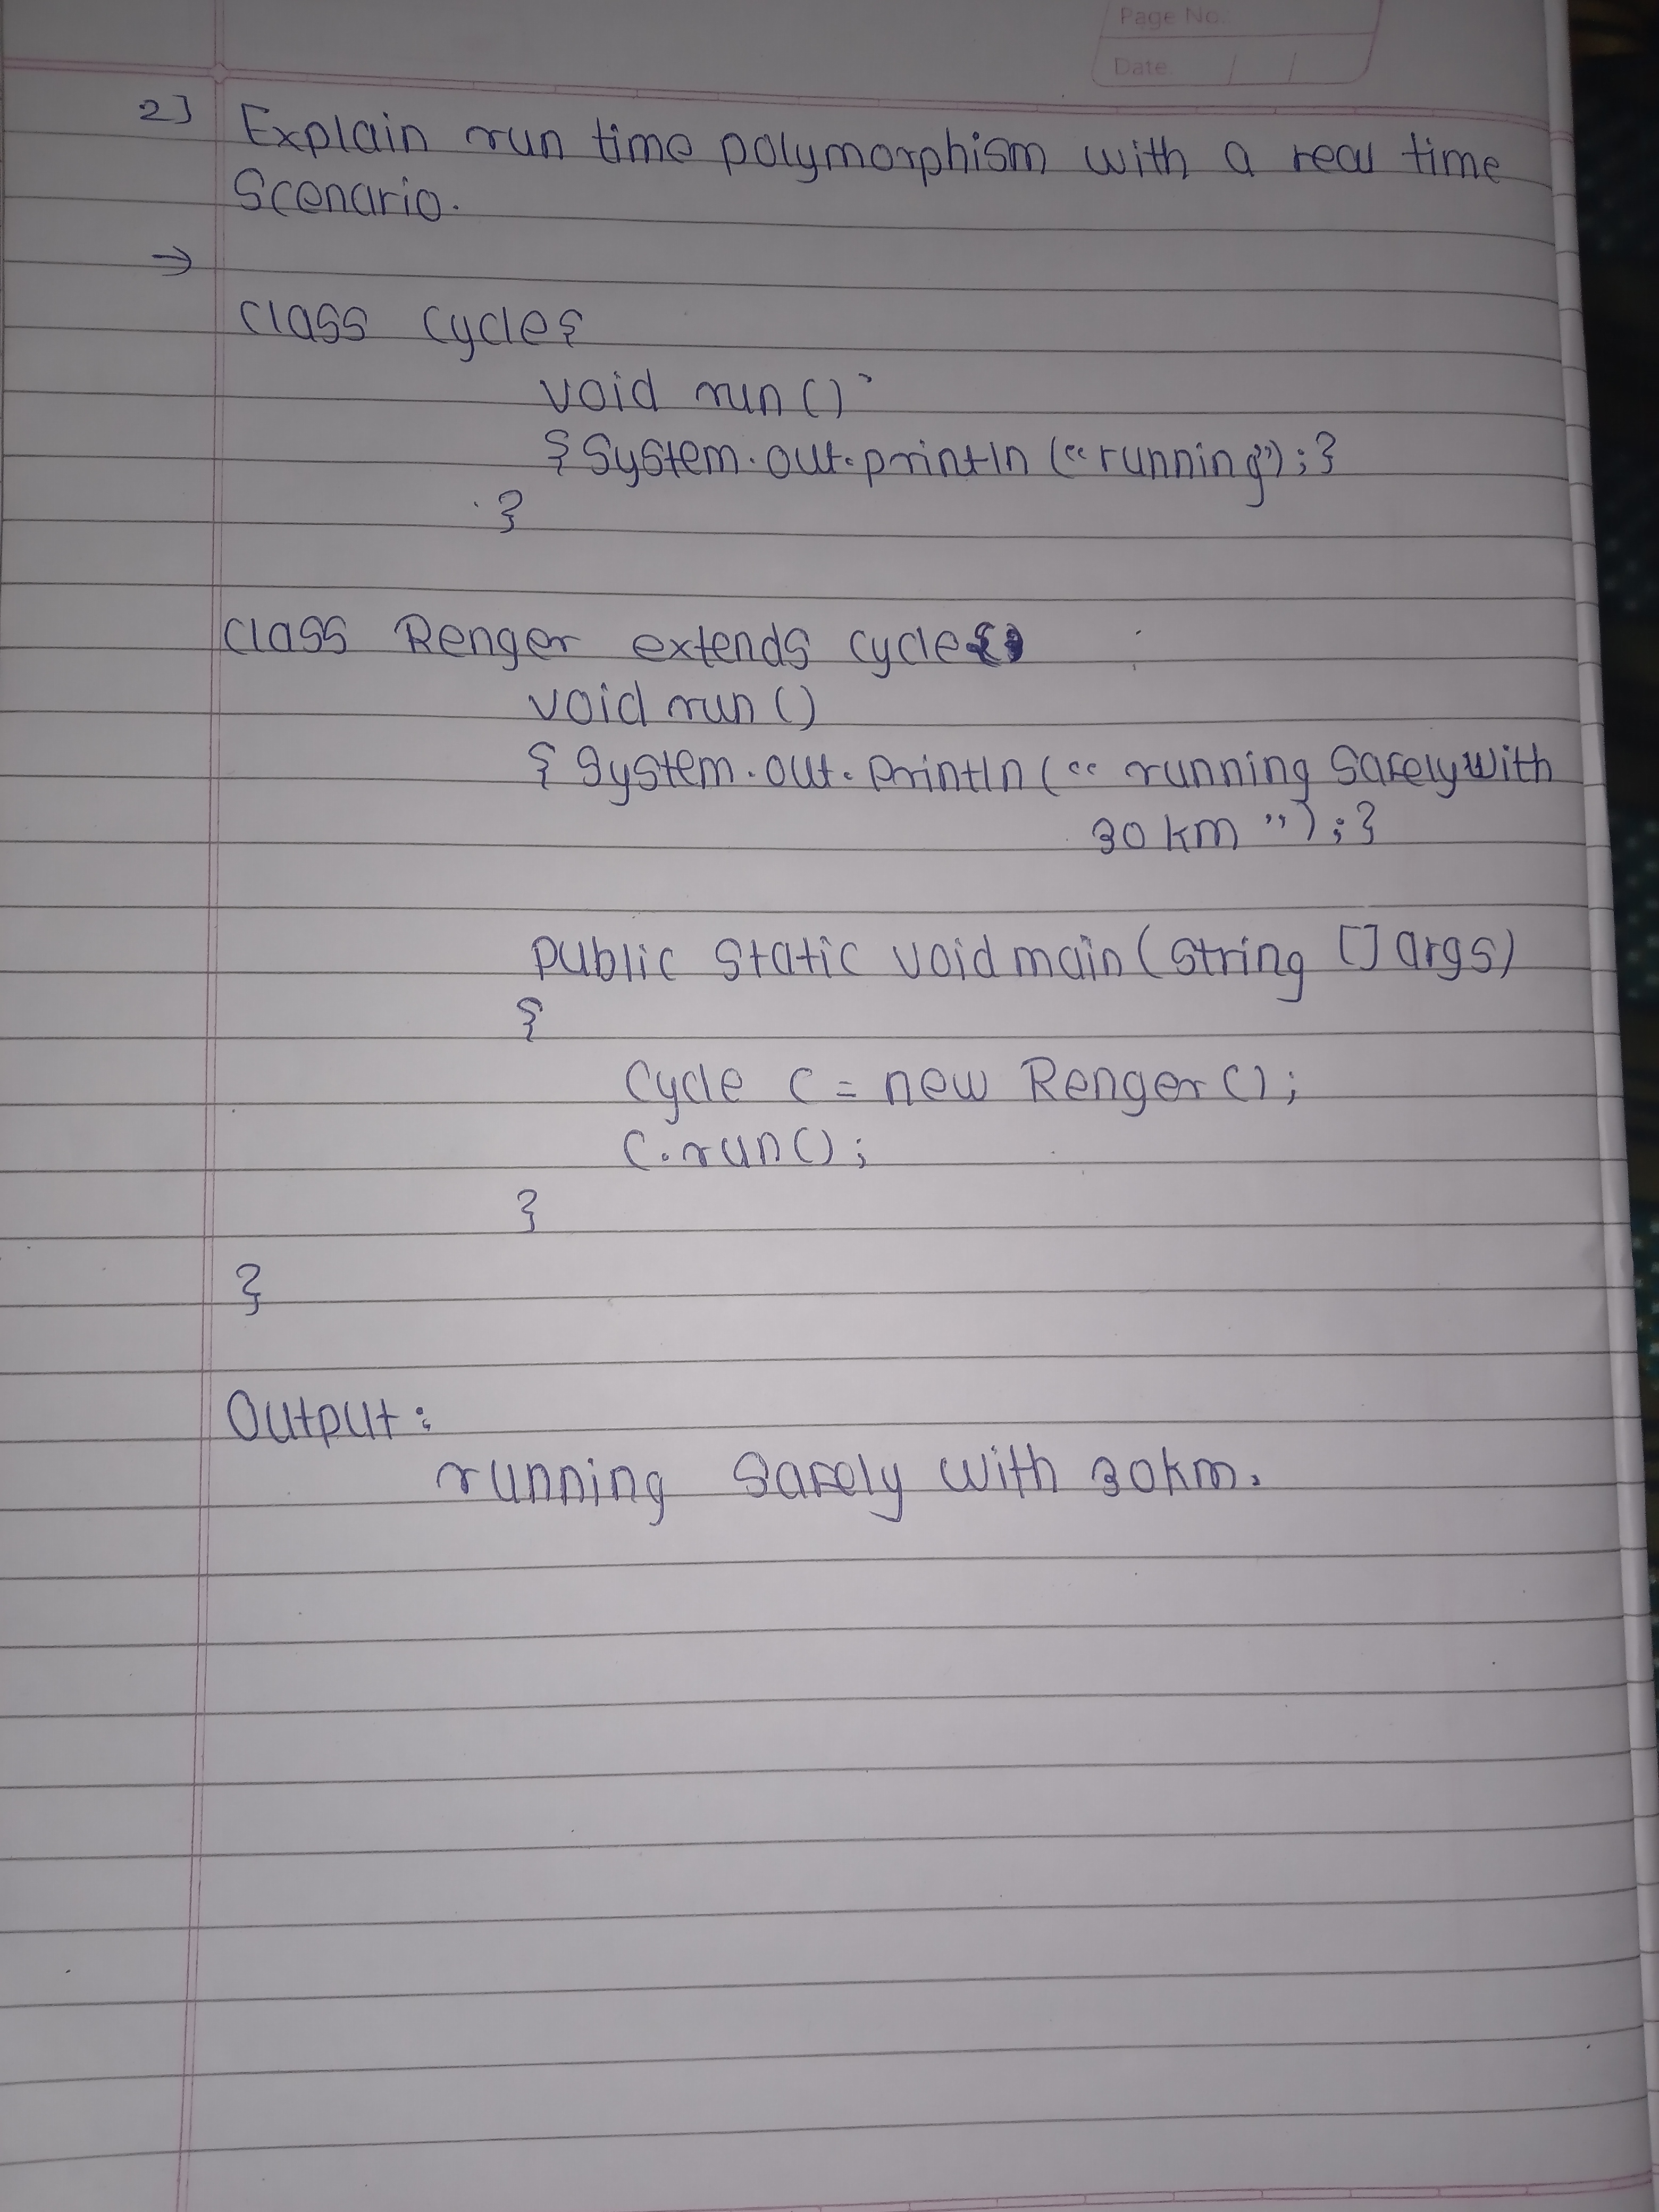 Page No.:
Date / /
2] Explain run time polymorphism with a real time
Scenario.
⇒
class Cycle{
void run()
{System.out.println(“running”);}
}
class Renger extends cycle{
void run()
{ System.out.println(“ running Safely with
30 km ”);}
public static void main(String [] args)
{
Cycle c = new Renger();
c.run();
}
}
Output:
running Safely with 30km.